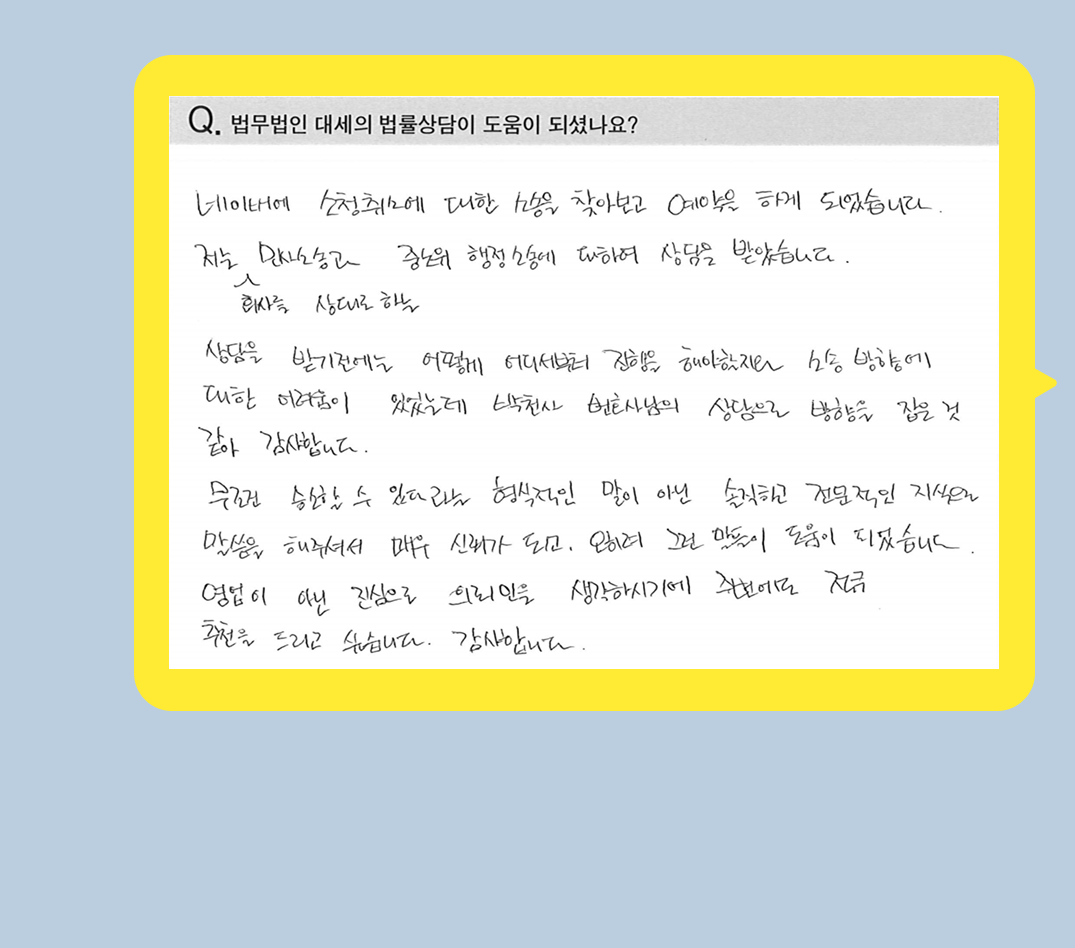 Q. 법무법인 대세의 법률상담이 도움이 되셨나요?
네이버에 소청취소에 대한 소송을 찾아보고 예약을 하게 되었습니다.
저는 민사소송과 중노위 행정소송에 대하여 상담을 받았습니다.
회사를 상대로 하는
상담을 받기전에는 어떻게 어디서부터 진행을 해야할지와 소송 방향에
대한 어려움이 있었는데 변호사님의 상담으로 방향을 잡은 것
같아 감사합니다.
무조건 승소할 수 있다 라는 형식적인 말이 아닌 솔직하고 전문적인 지식으로
말씀을 해주셔서 매우 신뢰가 되고, 오히려 그런 말들이 도움이 되었습니다.
영업이 아닌 진심으로 의뢰인을 생각하시기에 주변에도 적극
추천을 드리고 싶습니다. 감사합니다.